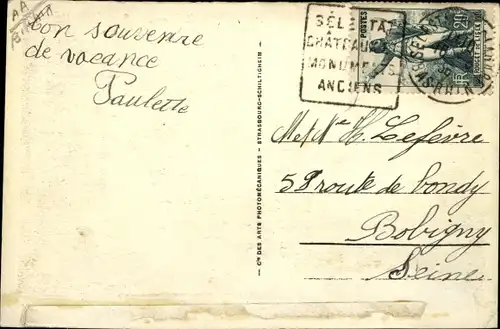 bon souvenire
de vacance
Paulette
SÉLESTAT
CHÂTEAUX
MONUMENTS
ANCIENS
POSTES
20c
Cie DES ARTS PHOTOMÉCANIQUES - STRASBOURG-SCHILTIGHEIM
Met Me H. Lefèvre
58 route de bondy
Bobigny
Seine